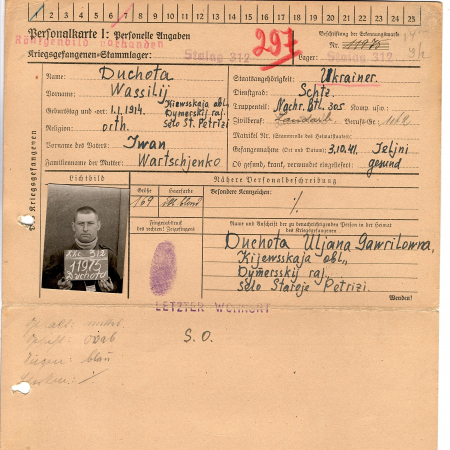 1 2 3 4 5 6 7 8 9 10 11 12 13 14 15 16 17 18 19 20 21 22 23 24 25
Personalkarte I: Personelle Angaben
Beschriftung der Erkennungsmarke
Röntgenbild vorhanden
297
Nr. 11975
Kriegsgefangenen-Stammlager:
Stalag 312
Lager: Stalag 312
Name: Duchota
Staatsangehörigkeit: Ukrainer.
Vorname: Wassilij
Dienstgrad: Schtz.
Geburtstag und -ort: 1.1.1914. Kijewskaja obl.
Dymerskij raj.
selo St. Petrizi
Truppenteil: Nachr. Btl. 305 Komp. usw.:
Religion: orth.
Zivilberuf: Landarb. Berufs-Gr.:
Matrikel Nr. (Stammrolle des Heimatstaates):
Vorname des Vaters: Iwan
Gefangennahme (Ort und Datum): 3.10.41. Jeljni
Familienname der Mutter: Wartschjenko
Ob gesund, krank, verwundet eingeliefert: gesund
Des Kriegsgefangenen
Lichtbild
Nähere Personalbeschreibung
Größe
Haarfarbe
Besondere Kennzeichen:
169
dkl. blond
./.
Fingerabdruck
des rechten Zeigefingers
Name und Anschrift der zu benachrichtigenden Person in der Heimat
des Kriegsgefangenen
XXc 312
11975
Duchota
Duchota Uljana Gawrilowna,
Kijewskaja obl.,
Dymersskij raj.
selo Staroje Petrizi.
Wenden!
LETZTER WOHNORT
S. O.
Gesicht: oval
Augen: blau